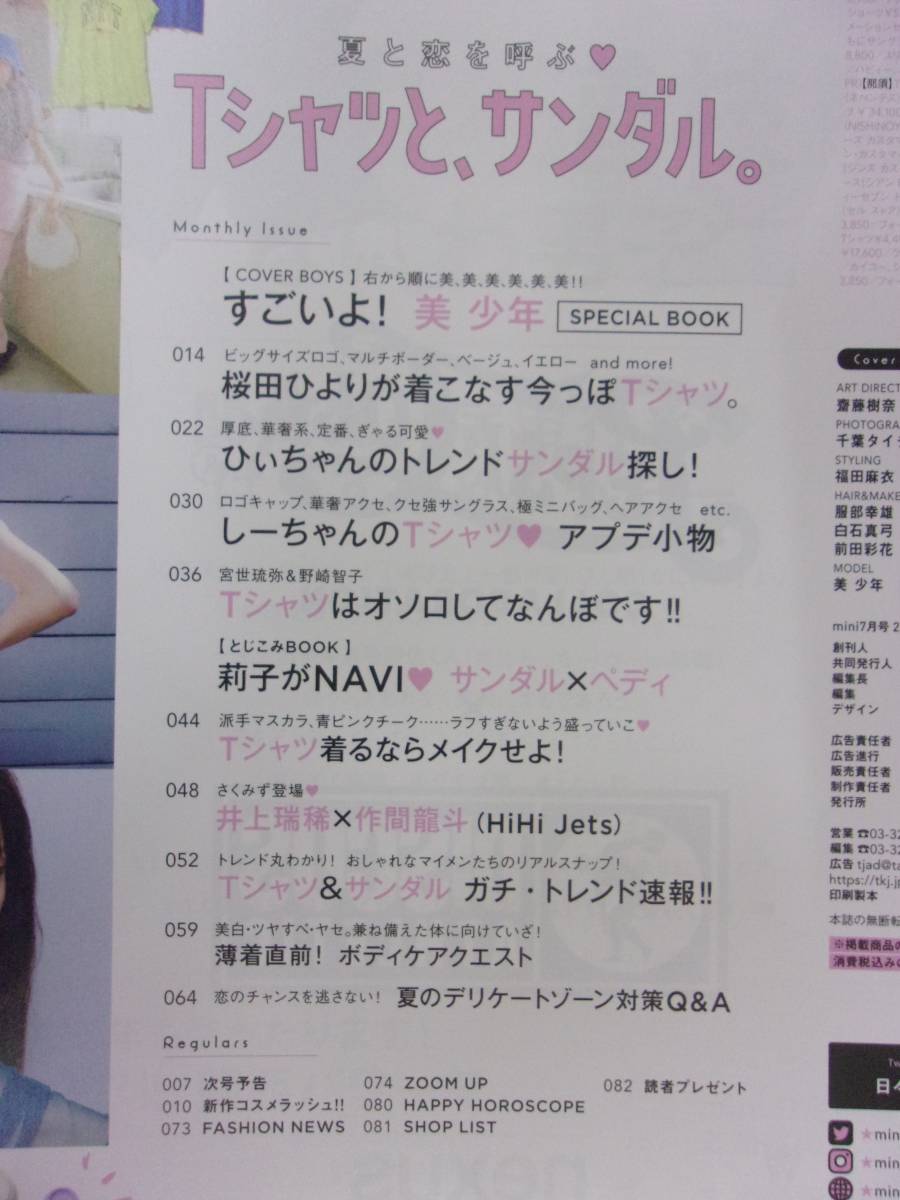 夏と恋を呼ぶ♥
Tシャツと、サンダル。
Monthly Issue
【 COVER BOYS 】 右から順に美、美、美、美、美、美!!
すごいよ! 美 少年 SPECIAL BOOK
014 ビッグサイズロゴ、マルチボーダー、ベージュ、イエロー and more!
桜田ひよりが着こなす今っぽTシャツ。
022 厚底、華奢系、定番、ぎゃる可愛♥
ひぃちゃんのトレンドサンダル探し!
030 ロゴキャップ、華奢アクセ、クセ強サングラス、極ミニバッグ、ヘアアクセ etc.
しーちゃんのTシャツ♥ アプデ小物
036 宮世琉弥&野崎智子
Tシャツはオソロしてなんぼです!!
【 とじこみBOOK 】
莉子がNAVI♥ サンダル×ペディ
044 派手マスカラ、青ピンクチーク……ラフすぎないよう盛っていこ♥
Tシャツ着るならメイクせよ!
048 さくみず登場♥
井上瑞稀×作間龍斗 (HiHi Jets)
052 トレンド丸わかり! おしゃれなマイメンたちのリアルスナップ!
Tシャツ&サンダル ガチ・トレンド速報!!
059 美白・ツヤすべ・ヤセ。兼ね備えた体に向けていざ!
薄着直前! ボディケアクエスト
064 恋のチャンスを逃さない! 夏のデリケートゾーン対策Q&A
Regulars
007 次号予告
010 新作コスメラッシュ!!
073 FASHION NEWS
074 ZOOM UP
080 HAPPY HOROSCOPE
081 SHOP LIST
082 読者プレゼント
Cover
ART DIRECT
齋藤樹奈
PHOTOGRA
千葉タイ
STYLING
福田麻衣
HAIR&MAKE
服部幸雄
白石真弓
前田彩花
MODEL
美 少年
mini7月号 2
創刊人
共同発行人
編集長
編集
デザイン
広告責任者
広告進行
販売責任者
制作責任者
発行所
営業 ☎03-32
編集 ☎03-32
広告 tjad@ta
https://tkj.jp
印刷製本
本誌の無断転
※掲載商品の
消費税込みの
日々
★min
★min
★min